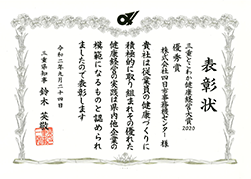 表彰状
三重とこわか健康経営大賞
2020
優秀賞
株式会社四日市事務機センター 様
貴社は従業員の健康づくりに
積極的に取り組まれその優れた
健康経営の実践は県内他企業の
模範になるものと認められ
ましたので表彰します
令和二年九月二十四日
三重県知事 鈴木英敬